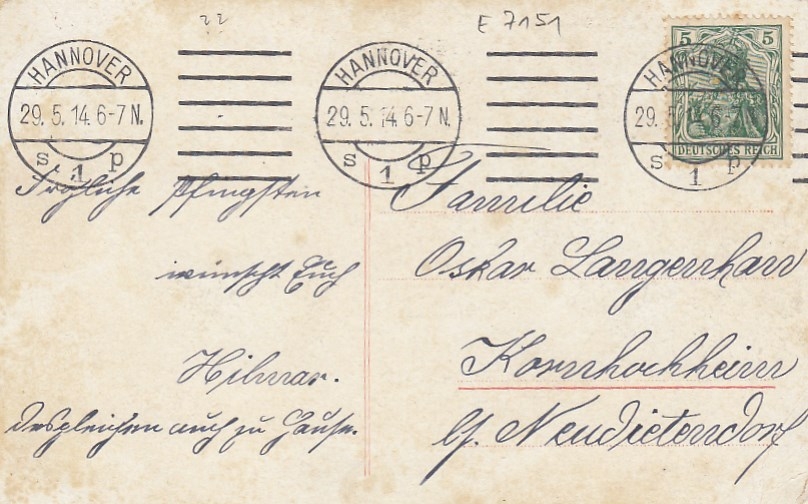 22
E 7151
HANNOVER
29. 5. 14. 6-7 N.
s 1 p
HANNOVER
29. 5. 14. 6-7 N.
s 1 p
HANNOVER
29. 5. 14. 6-7
s 1 p
5 5
DEUTSCHES REICH
Fröhliche Pfingsten
wünscht Euch
Hilmar.
Desgleichen auch zu Hause.
Familie
Oskar Langenhan
Kornhochheim
b/. Neudietendorf